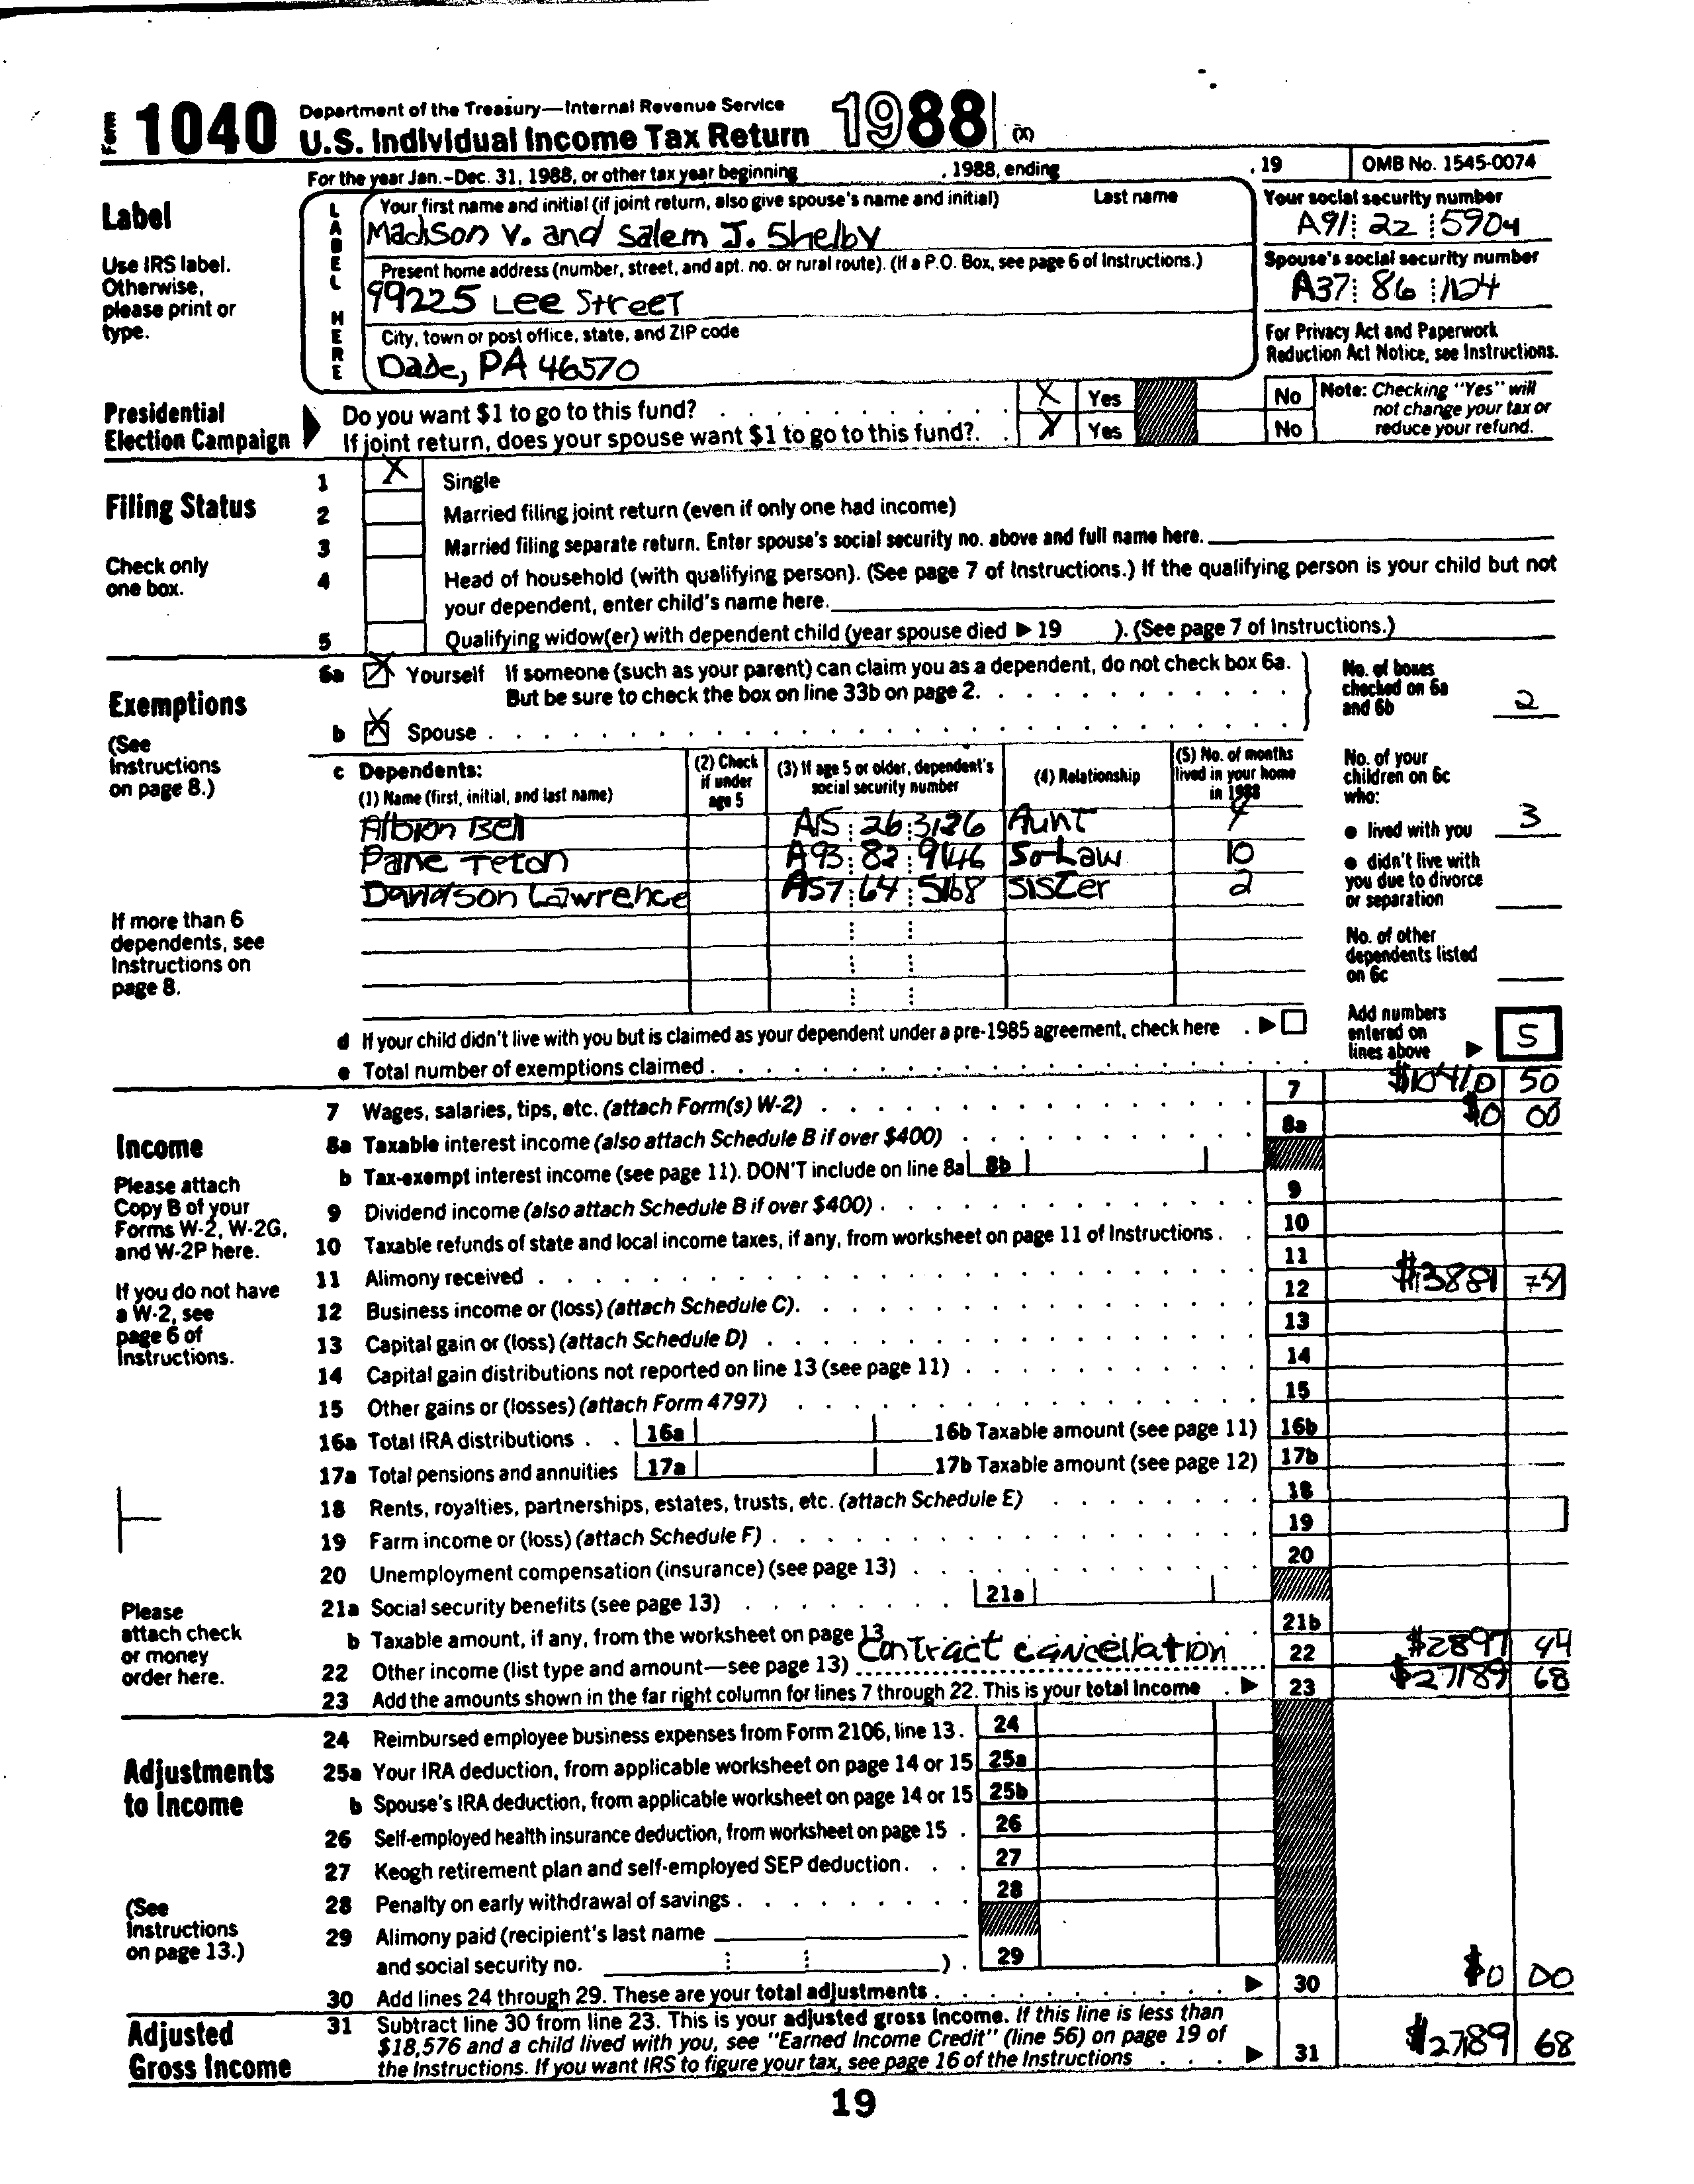 Form 1040 Department of the Treasury—Internal Revenue Service
U.S. Individual Income Tax Return 1988 (X)
For the year Jan.-Dec. 31, 1988, or other tax year beginning , 1988, ending , 19 OMB No. 1545-0074
Label
Use IRS label. Otherwise, please print or type.
LABEL HERE
Your first name and initial (if joint return, also give spouse's name and initial) Last name
Madison V. and Salem J. Shelby
Your social security number
A91 22 5904
Present home address (number, street, and apt. no. or rural route). (If a P.O. Box, see page 6 of Instructions.)
99225 Lee Street
Spouse's social security number
A37 86 1124
City, town or post office, state, and ZIP code
Dade, PA 46570
For Privacy Act and Paperwork Reduction Act Notice, see Instructions.
Presidential Election Campaign
Do you want $1 to go to this fund? X Yes No
If joint return, does your spouse want $1 to go to this fund?. X Yes No
Note: Checking "Yes" will not change your tax or reduce your refund.
Filing Status
Check only one box.
1 X Single
2 Married filing joint return (even if only one had income)
3 Married filing separate return. Enter spouse's social security no. above and full name here.
4 Head of household (with qualifying person). (See page 7 of Instructions.) If the qualifying person is your child but not
your dependent, enter child's name here.
5 Qualifying widow(er) with dependent child (year spouse died ▶ 19 ). (See page 7 of Instructions.)
Exemptions
(See Instructions on page 8.)
6a X Yourself If someone (such as your parent) can claim you as a dependent, do not check box 6a.
But be sure to check the box on line 33b on page 2.
b X Spouse
No. of boxes checked on 6a and 6b 2
c Dependents:
(1) Name (first, initial, and last name)
(2) Check if under age 5
(3) If age 5 or older, dependent's social security number
(4) Relationship
(5) No. of months lived in your home in 1988
Albion Bell A15 26 3126 Aunt 4
Pane Teton A93 82 9146 So-Law 10
Davidson Lawrence A57 64 5168 Sister 2
No. of your children on 6c who:
● lived with you 3
● didn't live with you due to divorce or separation
No. of other dependents listed on 6c
If more than 6 dependents, see Instructions on page 8.
d If your child didn't live with you but is claimed as your dependent under a pre-1985 agreement, check here ▶
e Total number of exemptions claimed
Add numbers entered on lines above ▶ 5
Income
Please attach Copy B of your Forms W-2, W-2G, and W-2P here.
If you do not have a W-2, see page 6 of Instructions.
Please attach check or money order here.
7 Wages, salaries, tips, etc. (attach Form(s) W-2) 7 $10410 50
8a Taxable interest income (also attach Schedule B if over $400) 8a $0 00
b Tax-exempt interest income (see page 11). DON'T include on line 8a 8b
9 Dividend income (also attach Schedule B if over $400) 9
10 Taxable refunds of state and local income taxes, if any, from worksheet on page 11 of Instructions 10
11 Alimony received 11
12 Business income or (loss) (attach Schedule C) 12 $13881 74
13 Capital gain or (loss) (attach Schedule D) 13
14 Capital gain distributions not reported on line 13 (see page 11) 14
15 Other gains or (losses) (attach Form 4797) 15
16a Total IRA distributions 16a 16b Taxable amount (see page 11) 16b
17a Total pensions and annuities 17a 17b Taxable amount (see page 12) 17b
18 Rents, royalties, partnerships, estates, trusts, etc. (attach Schedule E) 18
19 Farm income or (loss) (attach Schedule F) 19
20 Unemployment compensation (insurance) (see page 13) 20
21a Social security benefits (see page 13) 21a
b Taxable amount, if any, from the worksheet on page 13 21b
22 Other income (list type and amount—see page 13) Contract cancellation 22 $2897 44
23 Add the amounts shown in the far right column for lines 7 through 22. This is your total income ▶ 23 $27189 68
Adjustments to Income
(See Instructions on page 13.)
24 Reimbursed employee business expenses from Form 2106, line 13. 24
25a Your IRA deduction, from applicable worksheet on page 14 or 15 25a
b Spouse's IRA deduction, from applicable worksheet on page 14 or 15 25b
26 Self-employed health insurance deduction, from worksheet on page 15 26
27 Keogh retirement plan and self-employed SEP deduction 27
28 Penalty on early withdrawal of savings 28
29 Alimony paid (recipient's last name
and social security no. ) 29
30 Add lines 24 through 29. These are your total adjustments ▶ 30 $0 00
Adjusted Gross Income
31 Subtract line 30 from line 23. This is your adjusted gross income. If this line is less than
$18,576 and a child lived with you, see "Earned Income Credit" (line 56) on page 19 of
the Instructions. If you want IRS to figure your tax, see page 16 of the Instructions ▶ 31 $27189 68
19